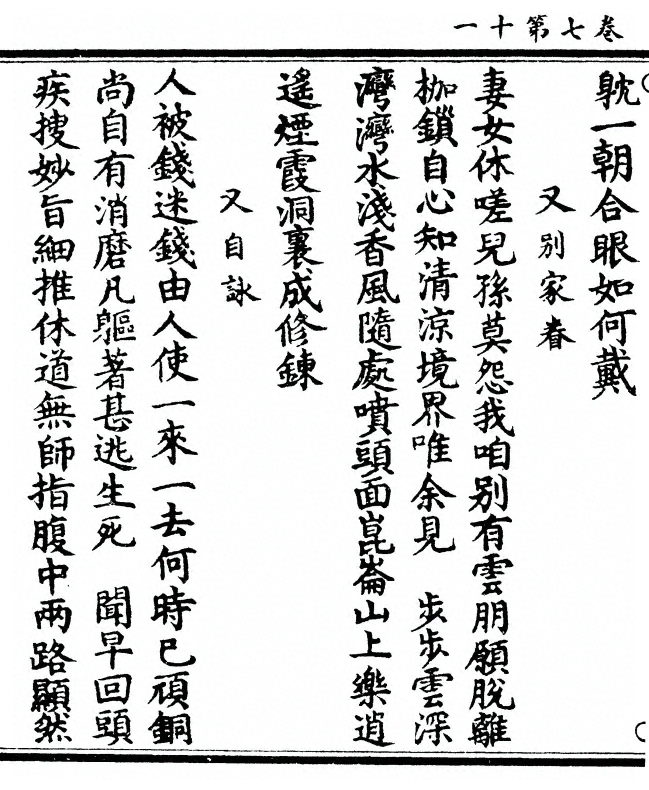 卷七第十一
躭一朝合眼如何戴
又別家眷
妻女休嗟兒孫莫怨我咱別有雲朋願脫離
枷鎖自心知清涼境界唯余見　步步雲深
灣灣水淺香風隨處噴頭面崑崙山上樂逍
遙煙霞洞裏成修鍊
又自詠
人被錢迷錢由人使一來一去何時已頑銅
尚自有消磨凡軀著甚逃生死　聞早回頭
疾搜妙旨細推休道無師指腹中兩路顯然